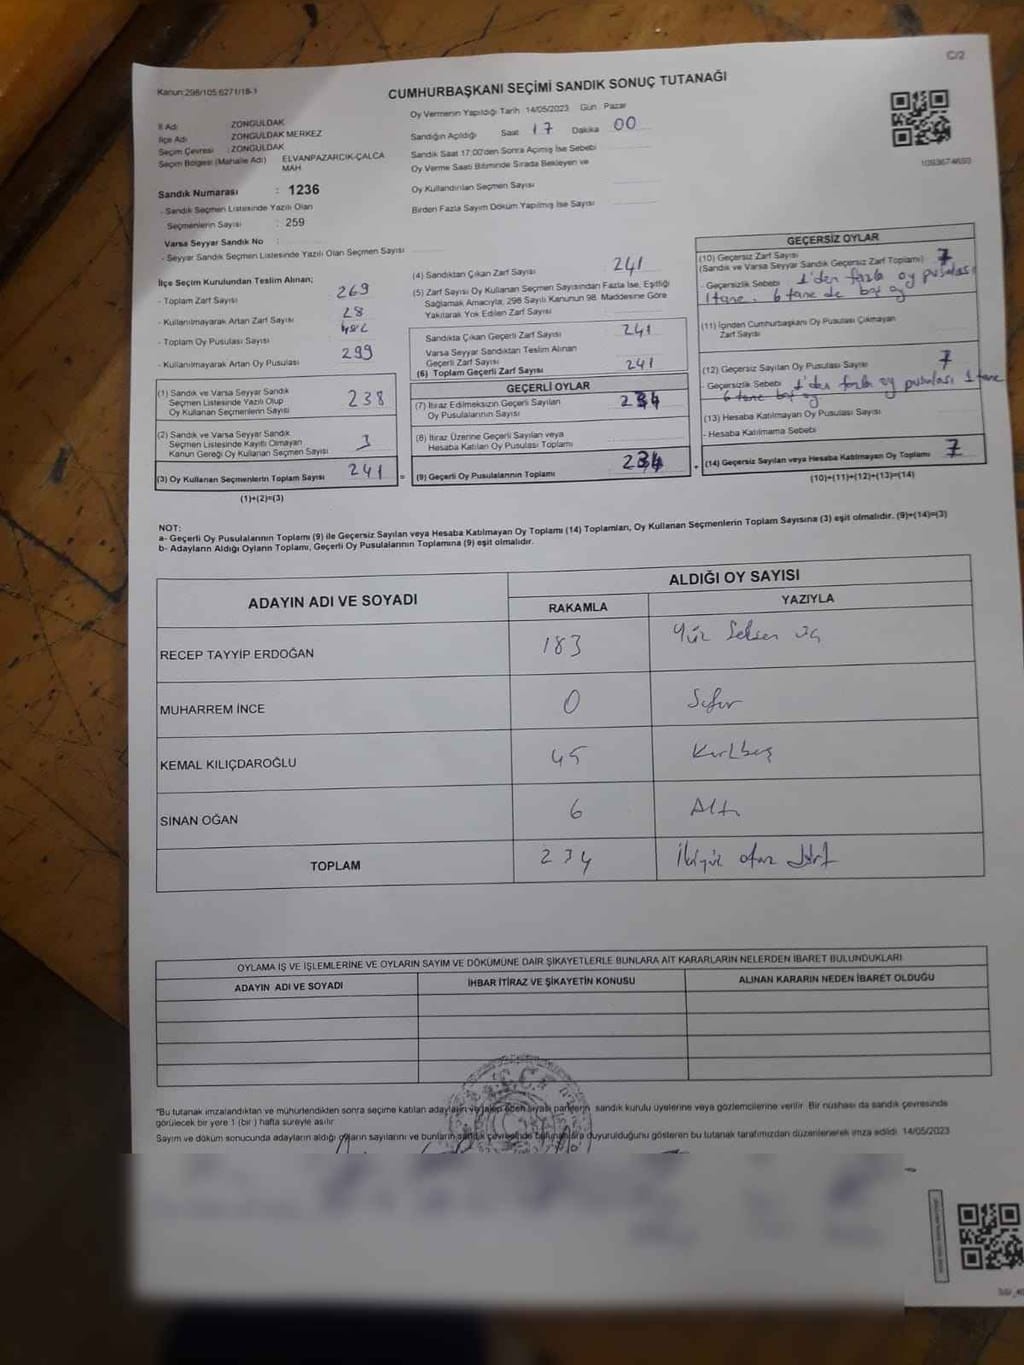 C/2
Kanun:298/105 6271/18-1
CUMHURBAŞKANI SEÇİMİ SANDIK SONUÇ TUTANAĞI
Oy Vermenin Yapıldığı Tarih 14/05/2023 Gün : Pazar
İl Adı : ZONGULDAK
İlçe Adı : ZONGULDAK MERKEZ
Seçim Çevresi : ZONGULDAK
Seçim Bölgesi (Mahalle Adı) ELVANPAZARCIK-ÇALCA MAH
Sandığın Açıldığı Saat 17 Dakika 00
Sandık Saat 17:00'den Sonra Açılmış İse Sebebi
Oy Verme Saati Bitiminde Sırada Bekleyen ve
Oy Kullandırılan Seçmen Sayısı
Birden Fazla Sayım Döküm Yapılmış İse Sayısı
Sandık Numarası : 1236
- Sandık Seçmen Listesinde Yazılı Olan
Seçmenlerin Sayısı : 259
Varsa Seyyar Sandık No :
- Seyyar Sandık Seçmen Listesinde Yazılı Olan Seçmen Sayısı
İlçe Seçim Kurulundan Teslim Alınan;
- Toplam Zarf Sayısı 269
- Kullanılmayarak Artan Zarf Sayısı 28
- Toplam Oy Pusulası Sayısı
- Kullanılmayarak Artan Oy Pusulası 299
(1) Sandık ve Varsa Seyyar Sandık
Seçmen Listesinde Yazılı Olup
Oy Kullanan Seçmenlerin Sayısı 238
(2) Sandık ve Varsa Seyyar Sandık
Seçmen Listesinde Kayıtlı Olmayan
Kanun Gereği Oy Kullanan Seçmen Sayısı 3
(3) Oy Kullanan Seçmenlerin Toplam Sayısı 241
(1)+(2)=(3)
(4) Sandıktan Çıkan Zarf Sayısı 241
(5) Zarf Sayısı Oy Kullanan Seçmen Sayısından Fazla İse, Eşitliği
Sağlamak Amacıyla, 298 Sayılı Kanunun 98. Maddesine Göre
Yakılarak Yok Edilen Zarf Sayısı
Sandıkta Çıkan Geçerli Zarf Sayısı 241
Varsa Seyyar Sandıktan Teslim Alınan
Geçerli Zarf Sayısı
(6) Toplam Geçerli Zarf Sayısı 241
GEÇERLİ OYLAR
(7) İtiraz Edilmeksizin Geçerli Sayılan
Oy Pusulalarının Sayısı 234
(8) İtiraz Üzerine Geçerli Sayılan veya
Hesaba Katılan Oy Pusulası Toplamı
= (9) Geçerli Oy Pusulalarının Toplamı 234
GEÇERSİZ OYLAR
(10) Geçersiz Zarf Sayısı 7
(Sandık ve Varsa Seyyar Sandık Geçersiz Zarf Toplamı)
- Geçersizlik Sebebi 1'den fazla oy pusulası
1 tane. 6 tane de boş oy
(11) İçinden Cumhurbaşkanı Oy Pusulası Çıkmayan
Zarf Sayısı
(12) Geçersiz Sayılan Oy Pusulası Sayısı 7
- Geçersizlik Sebebi 1'den fazla oy pusulası 1 tane
6 tane boş oy
(13) Hesaba Katılmayan Oy Pusulası Sayısı
- Hesaba Katılmama Sebebi
(14) Geçersiz Sayılan veya Hesaba Katılmayan Oy Toplamı 7
(10)+(11)+(12)+(13)=(14)
NOT:
a- Geçerli Oy Pusulalarının Toplamı (9) ile Geçersiz Sayılan veya Hesaba Katılmayan Oy Toplamı (14) Toplamları, Oy Kullanan Seçmenlerin Toplam Sayısına (3) eşit olmalıdır. (9)+(14)=(3)
b- Adayların Aldığı Oyların Toplamı, Geçerli Oy Pusulalarının Toplamına (9) eşit olmalıdır.
ADAYIN ADI VE SOYADI
ALDIĞI OY SAYISI
RAKAMLA YAZIYLA
RECEP TAYYİP ERDOĞAN 183 Yüz Seksen üç
MUHARREM İNCE 0 Sıfır
KEMAL KILIÇDAROĞLU 45 Kırkbeş
SİNAN OĞAN 6 Altı
TOPLAM 234 İkiyüz otuz dört
OYLAMA İŞ VE İŞLEMLERİNE VE OYLARIN SAYIM VE DÖKÜMÜNE DAİR ŞİKAYETLERLE BUNLARA AİT KARARLARIN NELERDEN İBARET BULUNDUKLARI
ADAYIN ADI VE SOYADI İHBAR İTİRAZ VE ŞİKAYETİN KONUSU ALINAN KARARIN NEDEN İBARET OLDUĞU
*Bu tutanak imzalandıktan ve mühürlendikten sonra seçime katılan adayların ve talep eden siyasi partilerin sandık kurulu üyelerine veya gözlemcilerine verilir. Bir nüshası da sandık çevresinde
görülecek bir yere 1 (bir) hafta süreyle asılır
Sayım ve döküm sonucunda adayların aldığı oyların sayılarını ve bunların sandık çevresinde bulunanlara duyurulduğunu gösteren bu tutanak tarafımızdan düzenlenerek imza edildi. 14/05/2023